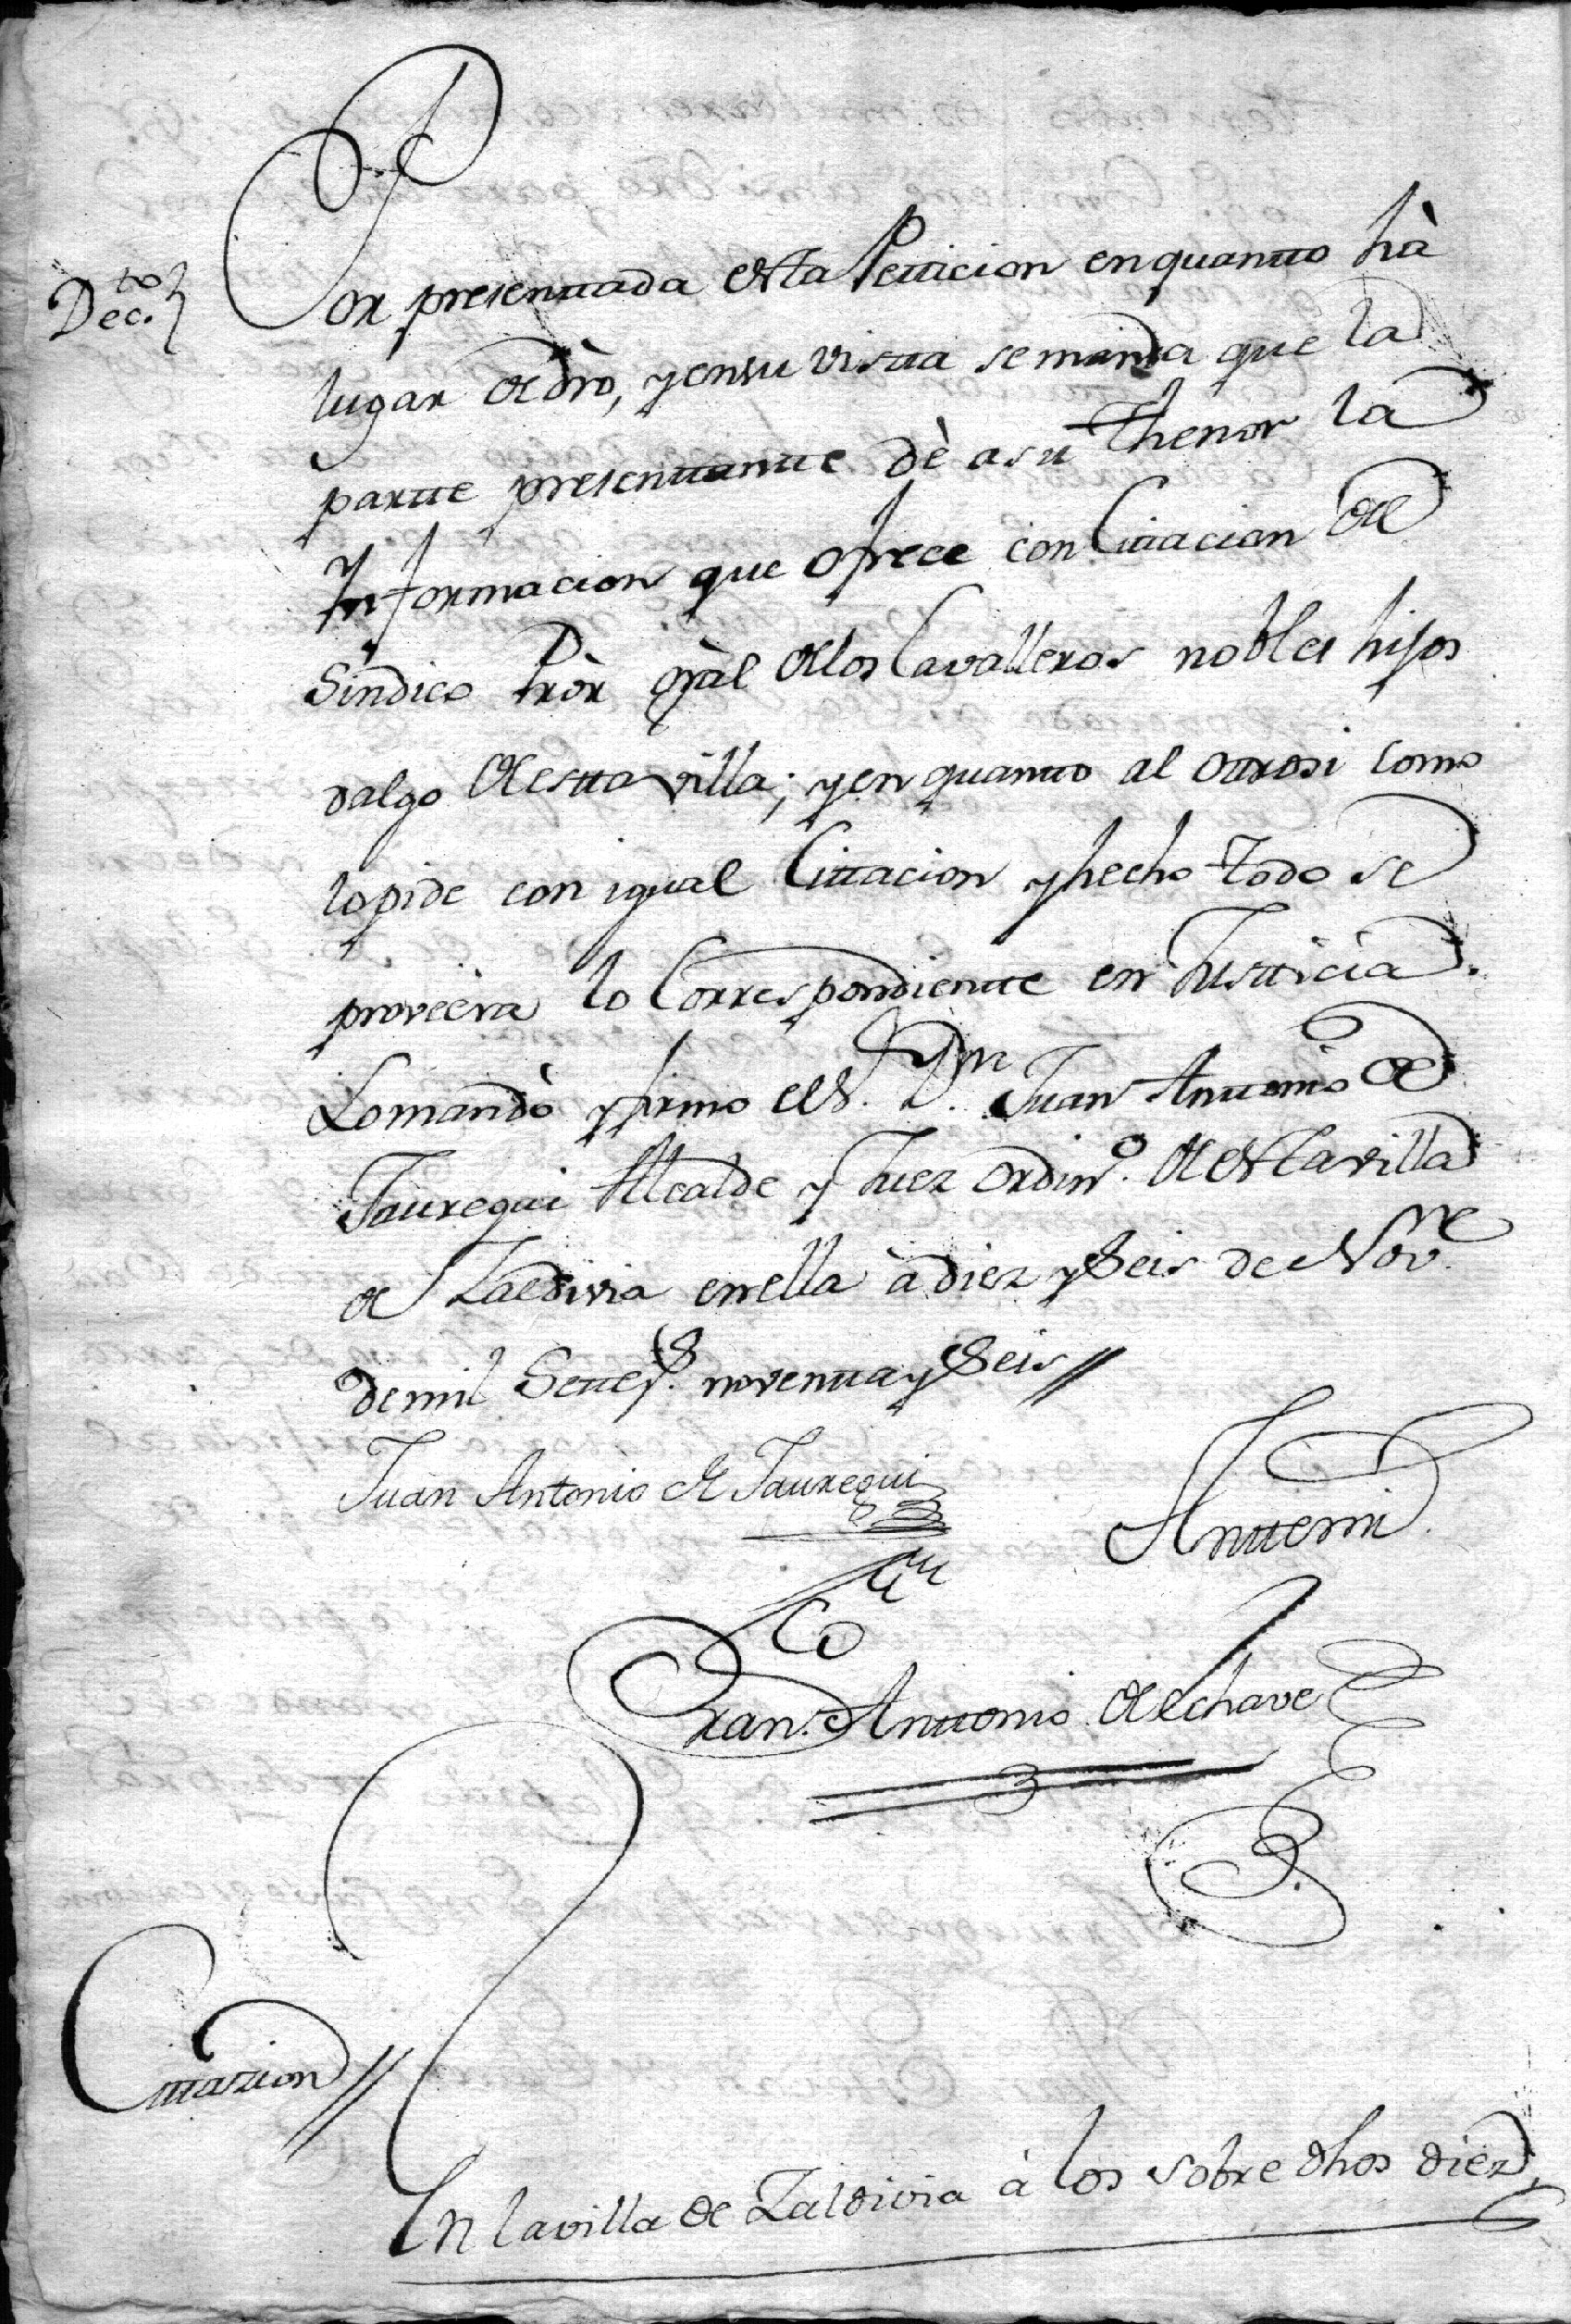 Dec.to
Por presenttada esta Petticion en quantto hà
lugar de dro, y en su vistta se manda que la
partte presenttantte dè a su thenor la
Informacion que ofrece con Cittacion del
Sindico Pròr gràl de los Cavalleros nobles hijos
dalgo de estta villa; y en quantto al ottrosi como
lo pide con igual Cittacion y hecho todo se
proveèra lo Correspondientte en Justticia.
Lo mandò y firmo el S.r D.n Juan Anttonio de
Jauregui Alcalde y Juez ordin.o de esta villa
de Zaldivia en ella à diez y Seis de Nov.re
de mil Settes.s noventta y Seis //
Juan Antonio de Jauregui
Antte mi
Fran.co Anttonio de Echave
Cittazion //
En la villa de Zaldivia à los sobre dhos diez